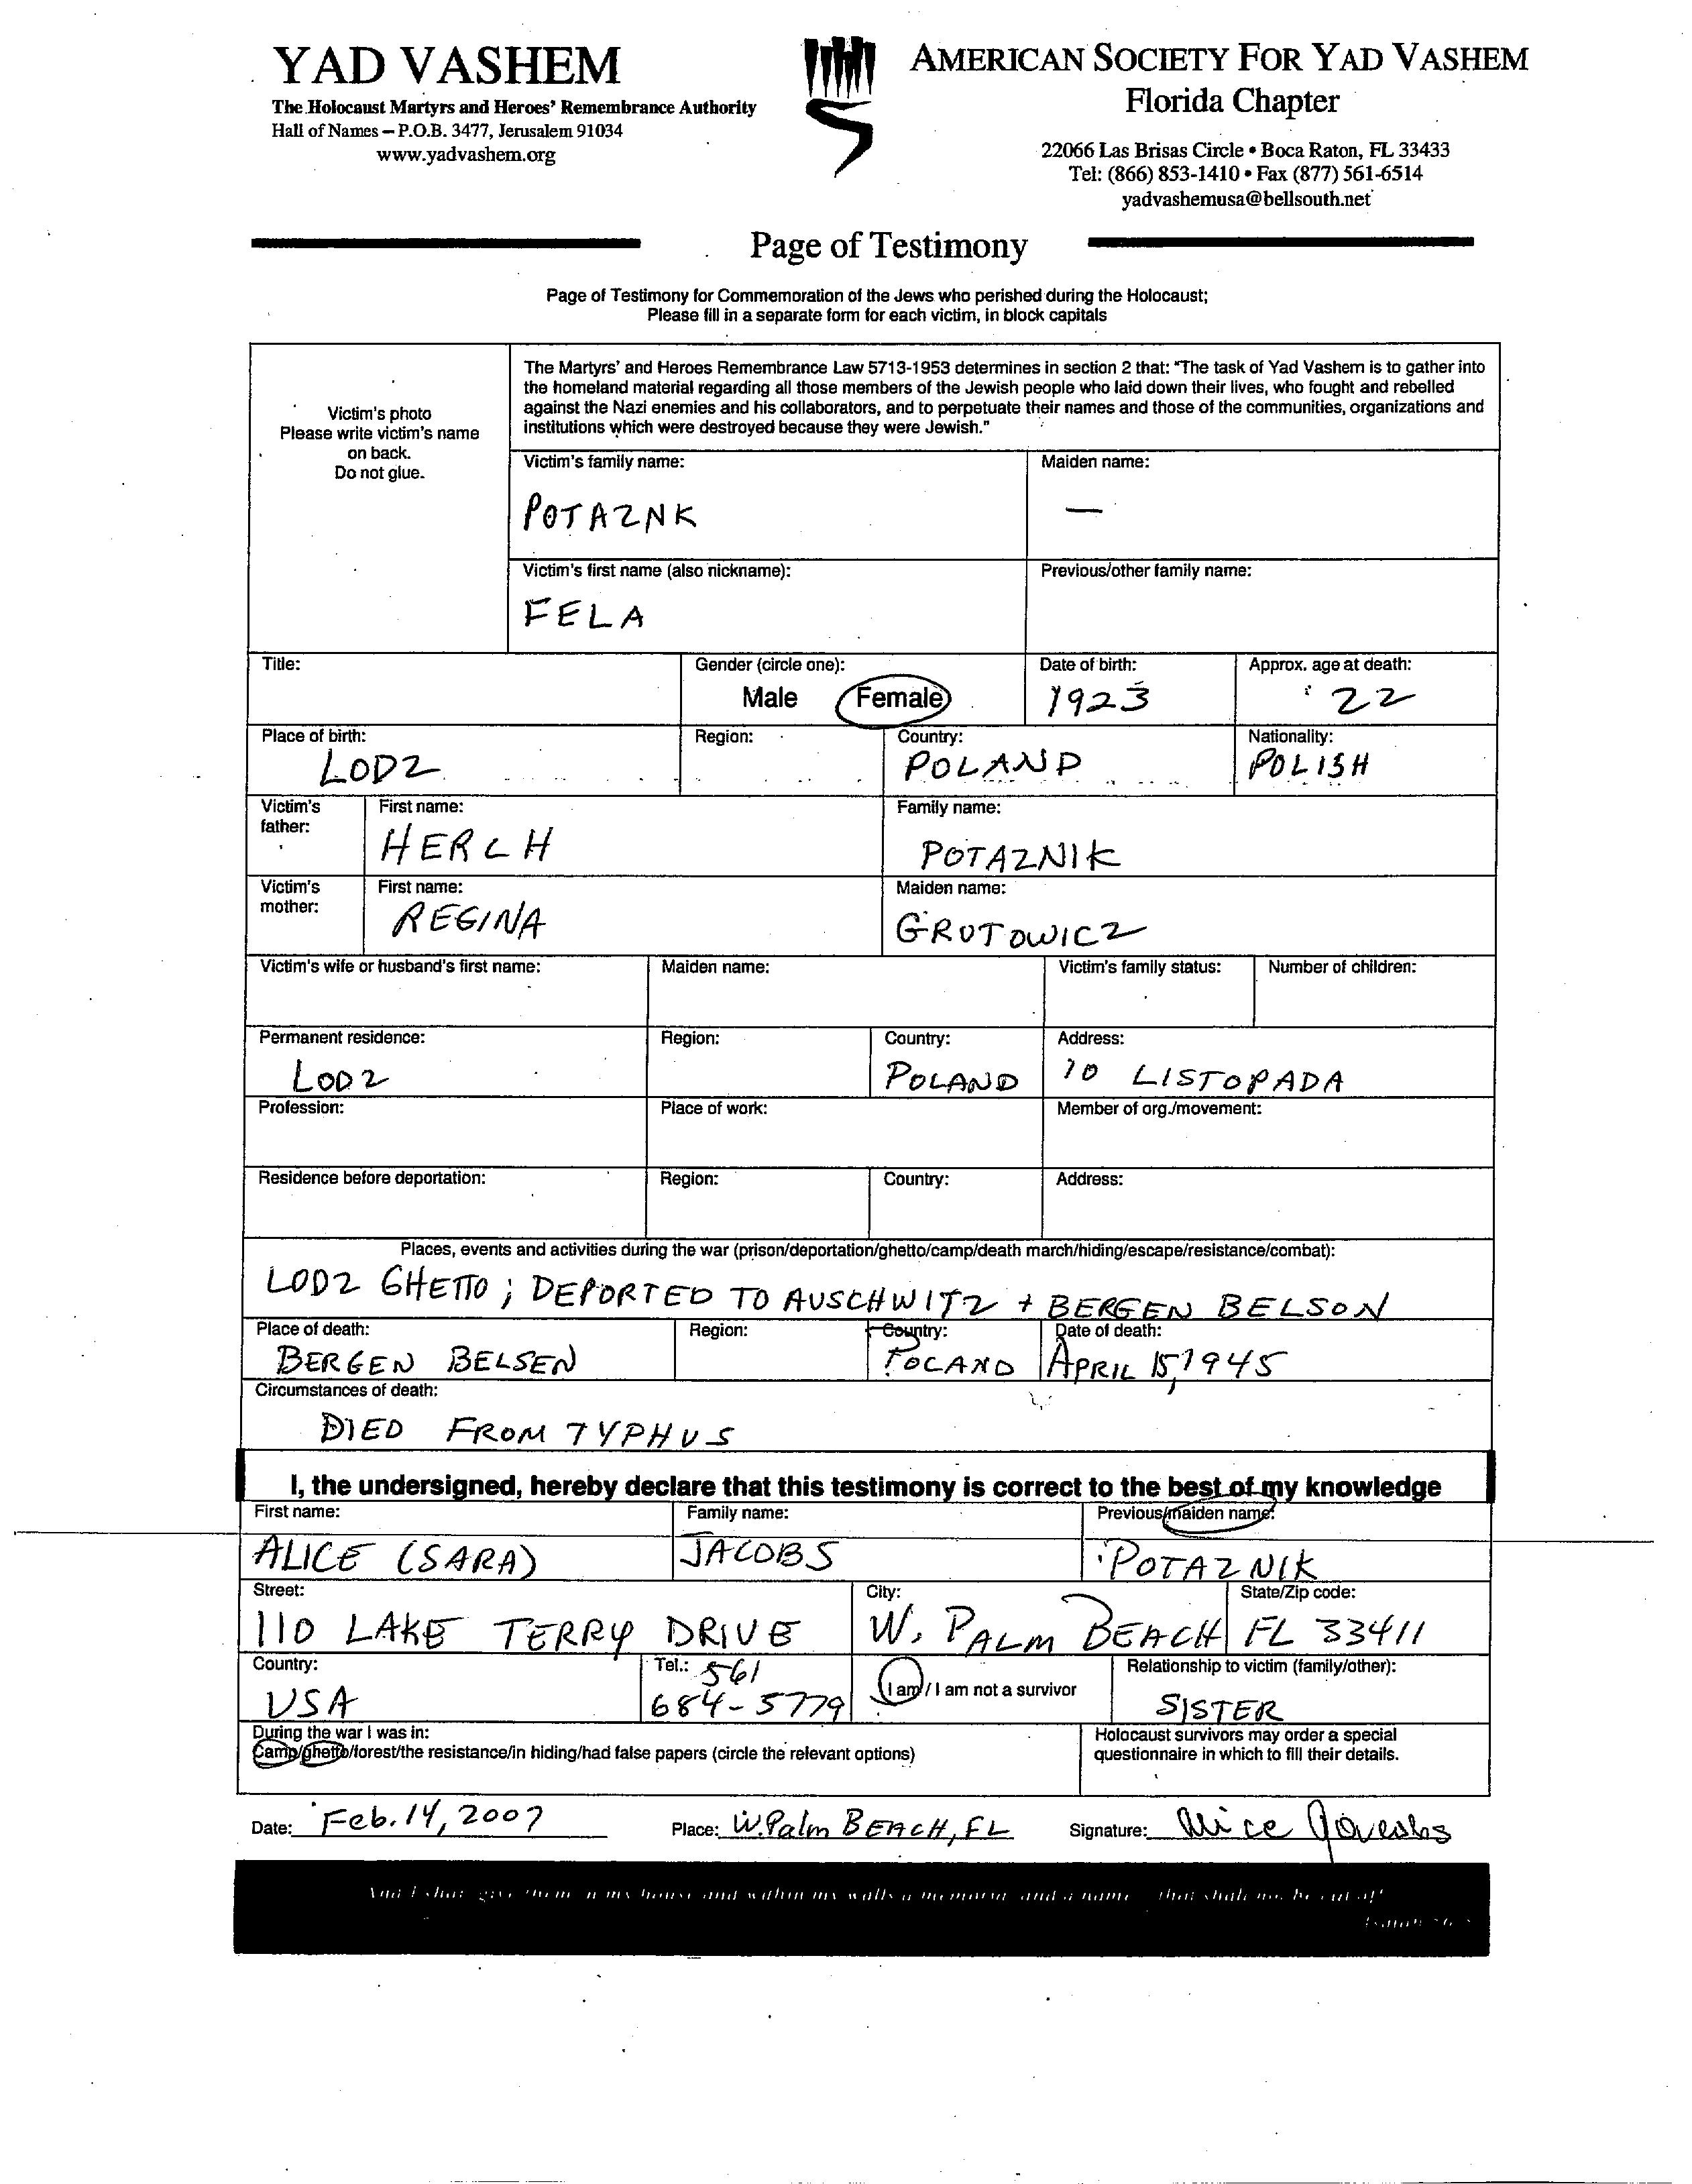 YAD VASHEM
The Holocaust Martyrs and Heroes' Remembrance Authority
Hall of Names – P.O.B. 3477, Jerusalem 91034
www.yadvashem.org
AMERICAN SOCIETY FOR YAD VASHEM
Florida Chapter
22066 Las Brisas Circle • Boca Raton, FL 33433
Tel: (866) 853-1410 • Fax (877) 561-6514
yadvashemusa@bellsouth.net
Page of Testimony
Page of Testimony for Commemoration of the Jews who perished during the Holocaust;
Please fill in a separate form for each victim, in block capitals
Victim's photo
Please write victim's name
on back.
Do not glue.
The Martyrs' and Heroes Remembrance Law 5713-1953 determines in section 2 that: "The task of Yad Vashem is to gather into
the homeland material regarding all those members of the Jewish people who laid down their lives, who fought and rebelled
against the Nazi enemies and his collaborators, and to perpetuate their names and those of the communities, organizations and
institutions which were destroyed because they were Jewish."
Victim's family name: Maiden name:
POTAZNK —
Victim's first name (also nickname): Previous/other family name:
FELA
Title: Gender (circle one): Date of birth: Approx. age at death:
Male Female 1923 22
Place of birth: Region: Country: Nationality:
LODZ POLAND POLISH
Victim's father: First name: Family name:
HERCH POTAZNIK
Victim's mother: First name: Maiden name:
REGINA GRUTOWICZ
Victim's wife or husband's first name: Maiden name: Victim's family status: Number of children:
Permanent residence: Region: Country: Address:
LODZ POLAND 10 LISTOPADA
Profession: Place of work: Member of org./movement:
Residence before deportation: Region: Country: Address:
Places, events and activities during the war (prison/deportation/ghetto/camp/death march/hiding/escape/resistance/combat):
LODZ GHETTO; DEPORTED TO AUSCHWITZ + BERGEN BELSON
Place of death: Region: Country: Date of death:
BERGEN BELSEN POLAND APRIL 15, 1945
Circumstances of death:
DIED FROM TYPHUS
I, the undersigned, hereby declare that this testimony is correct to the best of my knowledge
First name: Family name: Previous/maiden name:
ALICE (SARA) JACOBS POTAZNIK
Street: City: State/Zip code:
110 LAKE TERRY DRIVE W. PALM BEACH FL 33411
Country: Tel.: 561 I am / I am not a survivor Relationship to victim (family/other):
USA 684-5779 SISTER
During the war I was in: Holocaust survivors may order a special
Camp/ghetto/forest/the resistance/in hiding/had false papers (circle the relevant options) questionnaire in which to fill their details.
Date: Feb. 14, 2007 Place: W. Palm BEACH, FL Signature: Alice Jacobs